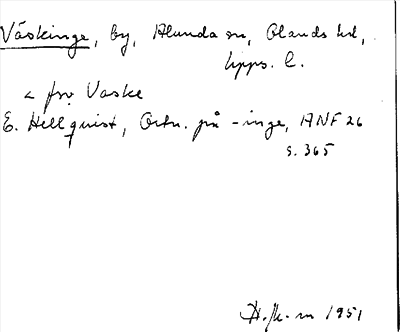 Väskinge, by, Alunda sn, Olands hd,
Upps. l.
< fsv Vaske
E. Hellquist, Ortn. på -inge, ANF 26
s. 365
1951